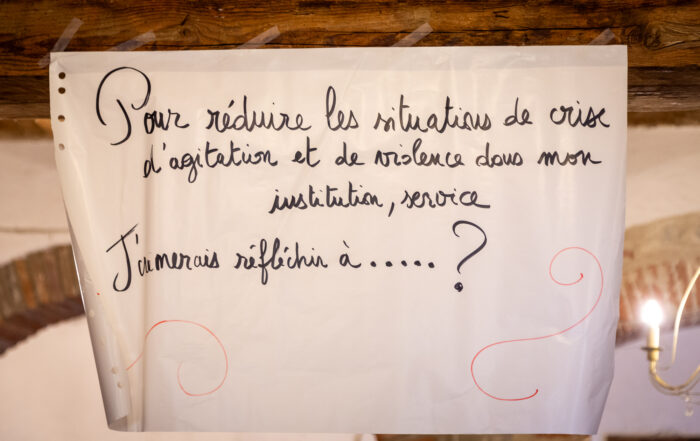 Pour réduire les situations de crise
d'agitation et de violence dans mon
institution, service
J'aimerais réfléchir à ..... ?